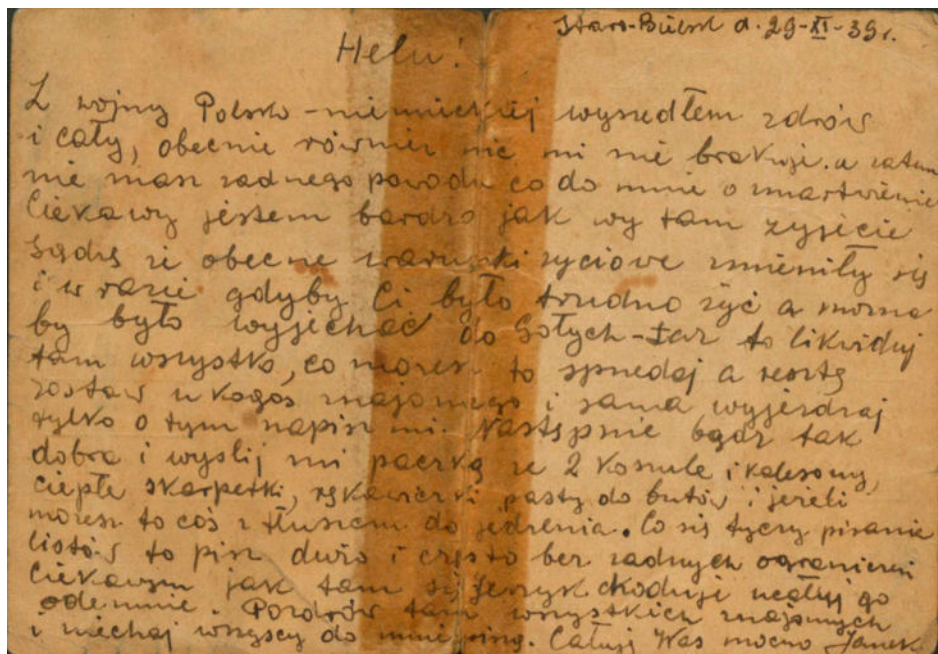 Staro-Bielsk d. 29-XI-39 r.
Helu!
Z wojny Polsko-niemieckiej wyszedłem zdrów
i cały, obecnie również nic mi nie brakuje. a zatem
nie masz żadnego powodu co do mnie o zmartwienie
Ciekawy jestem bardzo jak wy tam żyjecie
Sądzę że obecne warunki życiowe zmieniły się
i w razie gdyby Ci było trudno żyć a można
by było wyjechać do Gołych-Łaz to likwiduj
tam wszystko, co możesz to sprzedaj a resztę
zostaw u kogoś znajomego i sama wyjeżdżaj
tylko o tym napisz mi. Następnie bądź tak
dobra i wyslij mi paczkę ze 2 koszule i kalesony,
ciepłe skarpetki, rękawiczki pasty do butów i jeżeli
możesz to coś z tłuszczem do jedzenia. Co się tyczy pisanie
listów to pisz dużo i często bez żadnych ograniczeń
Ciekawym jak tam się Jerzyk chowa ucałuj go
odemnie. Pozdrów tam wszystkich znajomych
i niechaj wszyscy do mnie piszą. Całuję Was mocno Janek